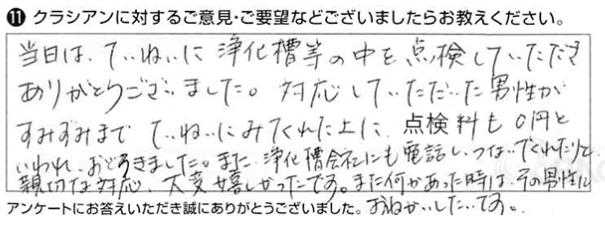 ⑪ クラシアンに対するご意見・ご要望などございましたらお教えください。
当日は、ていねいに浄化槽等の中を点検していただき
ありがとうございました。対応していただいた男性が
すみずみまでていねいにみてくれた上に、点検料も0円と
いわれ、おどろきました。また、浄化槽会社にも電話しつないでくれたりと
親切な対応、大変嬉しかったです。また何かあった時は、その男性に
おねがいしたいです。
アンケートにお答えいただき誠にありがとうございました。